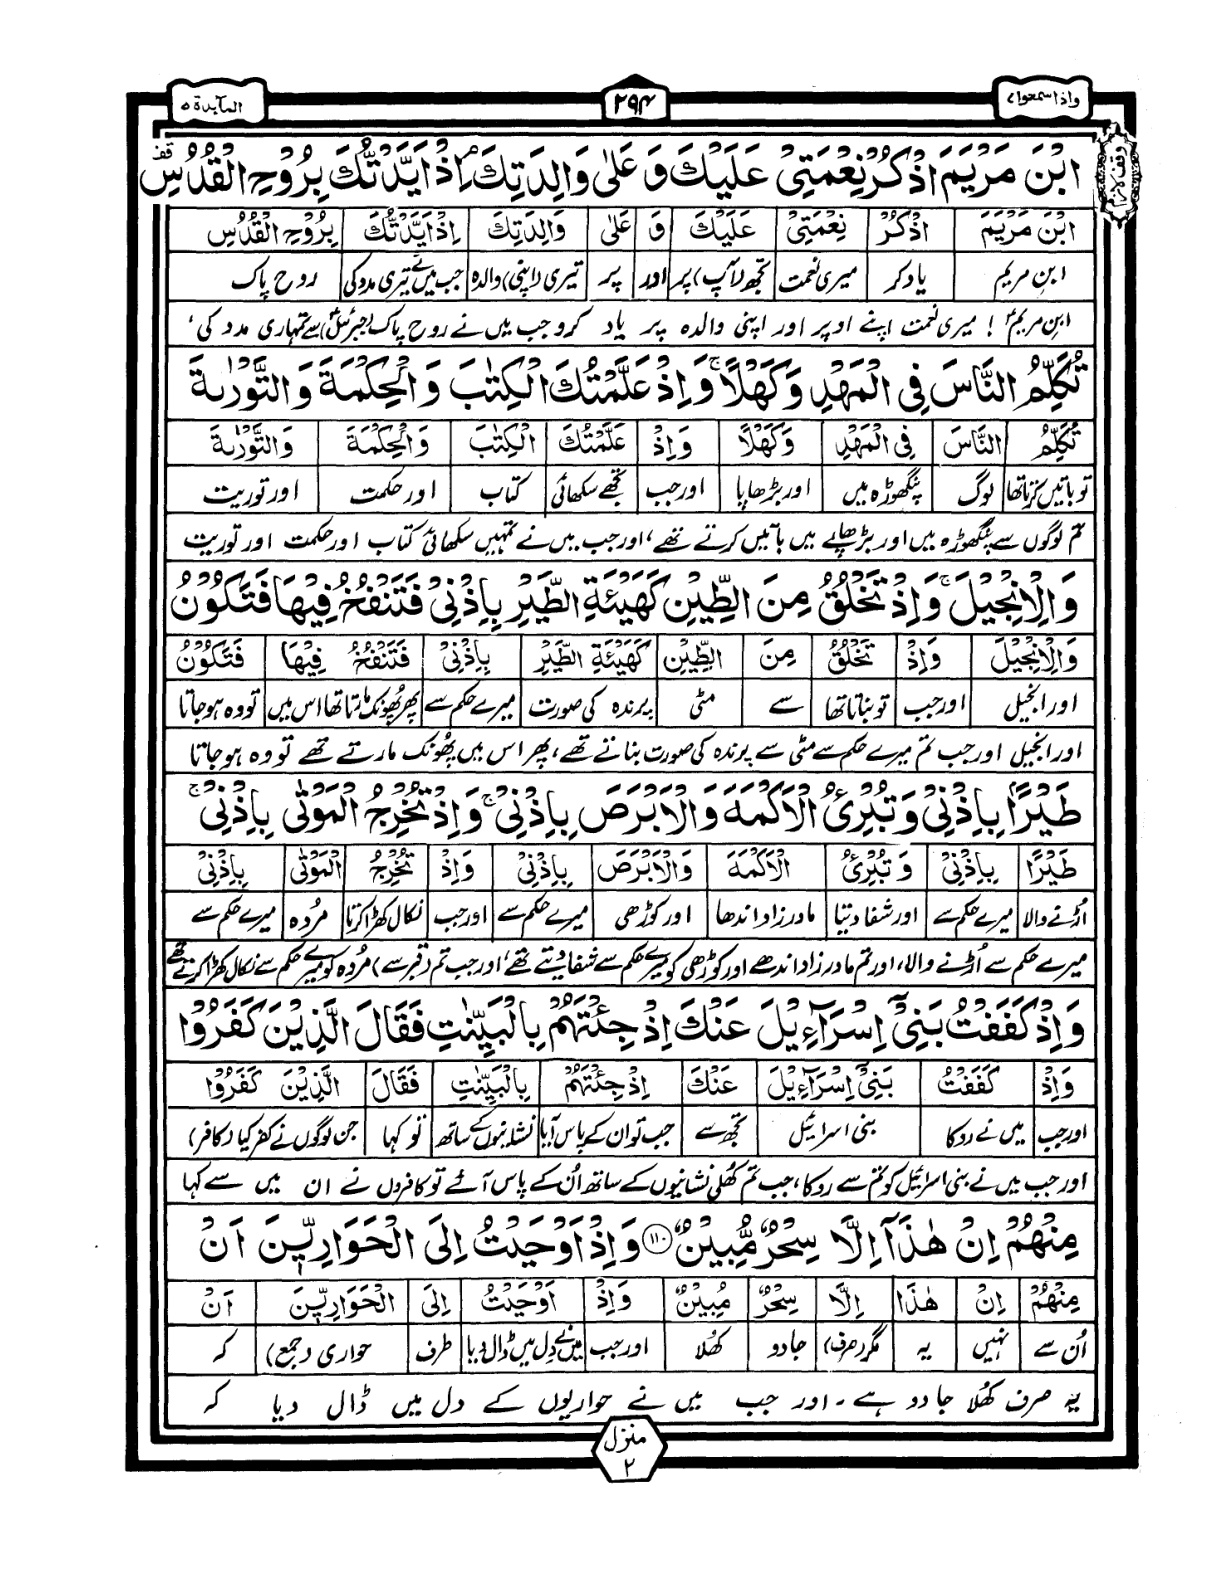 واذا سمعوا ۷
۲۹۴
المآيدة ۵
وقف لازم
ابْنَ مَرْيَمَ اذْكُرْ نِعْمَتِيْ عَلَيْكَ وَ عَلٰى وَالِدَتِكَ ۘ اِذْ اَيَّدْتُّكَ بِرُوْحِ الْقُدُسِ قف
ابْنَ مَرْيَمَ اذْكُرْ نِعْمَتِيْ عَلَيْكَ وَ عَلٰى وَالِدَتِكَ اِذْ اَيَّدْتُّكَ بِرُوْحِ الْقُدُسِ
ابنِ مریم یاد کر میری نعمت تجھ (آپ) پر اور پر تیری (اپنی) والدہ جب میں نے تیری مدد کی روح پاک
ابنِ مریمؑ ! میری نعمت اپنے اوپر اور اپنی والدہ پر یاد کرو جب میں نے روح پاک (جبرئیلؑ) سے تمہاری مدد کی،
تُكَلِّمُ النَّاسَ فِي الْمَهْدِ وَكَهْلًا ۚ وَاِذْ عَلَّمْتُكَ الْكِتٰبَ وَالْحِكْمَةَ وَالتَّوْرٰىةَ
تُكَلِّمُ النَّاسَ فِي الْمَهْدِ وَكَهْلًا وَاِذْ عَلَّمْتُكَ الْكِتٰبَ وَالْحِكْمَةَ وَالتَّوْرٰىةَ
تو باتیں کرتا تھا لوگ پنگھوڑہ میں اور بڑھاپا اور جب تجھے سکھائی کتاب اور حکمت اور توریت
تم لوگوں سے پنگھوڑہ میں اور بڑھاپے میں باتیں کرتے تھے، اور جب میں نے تمہیں سکھائی کتاب اور حکمت اور توریت
وَالْاِنْجِيْلَ ۚ وَاِذْ تَخْلُقُ مِنَ الطِّيْنِ كَهَيْئَةِ الطَّيْرِ بِاِذْنِيْ فَتَنْفُخُ فِيْهَا فَتَكُوْنُ
وَالْاِنْجِيْلَ وَاِذْ تَخْلُقُ مِنَ الطِّيْنِ كَهَيْئَةِ الطَّيْرِ بِاِذْنِيْ فَتَنْفُخُ فِيْهَا فَتَكُوْنُ
اور انجیل اور جب تو بناتا تھا سے مٹی پرندہ کی صورت میرے حکم سے پھر پھُونک مارتا تھا اس میں تو وہ ہو جاتا
اور انجیل اور جب تم میرے حکم سے مٹی سے پرندہ کی صورت بناتے تھے، پھر اس میں پھُونک مارتے تھے تو وہ ہو جاتا
طَيْرًۢا بِاِذْنِيْ وَتُبْرِئُ الْاَكْمَهَ وَالْاَبْرَصَ بِاِذْنِيْ ۚ وَاِذْ تُخْرِجُ الْمَوْتٰى بِاِذْنِيْ ۚ
طَيْرًا بِاِذْنِيْ وَتُبْرِئُ الْاَكْمَهَ وَالْاَبْرَصَ بِاِذْنِيْ وَاِذْ تُخْرِجُ الْمَوْتٰى بِاِذْنِيْ
اُڑنے والا میرے حکم سے اور شفا دیتا مادر زاد اندھا اور کوڑھی میرے حکم سے اور جب نکال کھڑا کرتا مُردہ میرے حکم سے
میرے حکم سے اُڑنے والا، اور تم مادر زاد اندھے اور کوڑھی کو میرے حکم سے شفا دیتے تھے، اور جب تم (قبر سے) مُردہ کو میرے حکم سے نکال کھڑا کرتے تھے
وَاِذْ كَفَفْتُ بَنِيْٓ اِسْرَآءِيْلَ عَنْكَ اِذْ جِئْتَهُمْ بِالْبَيِّنٰتِ فَقَالَ الَّذِيْنَ كَفَرُوْا
وَاِذْ كَفَفْتُ بَنِيْٓ اِسْرَآءِيْلَ عَنْكَ اِذْ جِئْتَهُمْ بِالْبَيِّنٰتِ فَقَالَ الَّذِيْنَ كَفَرُوْا
اور جب میں نے روکا بنی اسرائیل تجھ سے جب تو ان کے پاس آیا نشانیوں کے ساتھ تو کہا جن لوگوں نے کفر کیا (کافر)
اور جب میں نے بنی اسرائیل کو تم سے روکا، جب تم کھلی نشانیوں کے ساتھ اُن کے پاس آئے تو کافروں نے ان میں سے کہا
مِنْهُمْ اِنْ هٰذَآ اِلَّا سِحْرٌ مُّبِيْنٌ ۝۱۱۰ وَاِذْ اَوْحَيْتُ اِلَى الْحَوَارِيّٖنَ اَنْ
مِنْهُمْ اِنْ هٰذَا اِلَّا سِحْرٌ مُبِيْنٌ وَاِذْ اَوْحَيْتُ اِلَى الْحَوَارِيّٖنَ اَنْ
اُن سے نہیں یہ مگر (صرف) جادو کھُلا اور جب میں نے دل میں ڈال دیا طرف حواری (جمع) کہ
یہ صرف کھُلا جادو ہے۔ اور جب میں نے حواریوں کے دل میں ڈال دیا کہ
منزل
۲